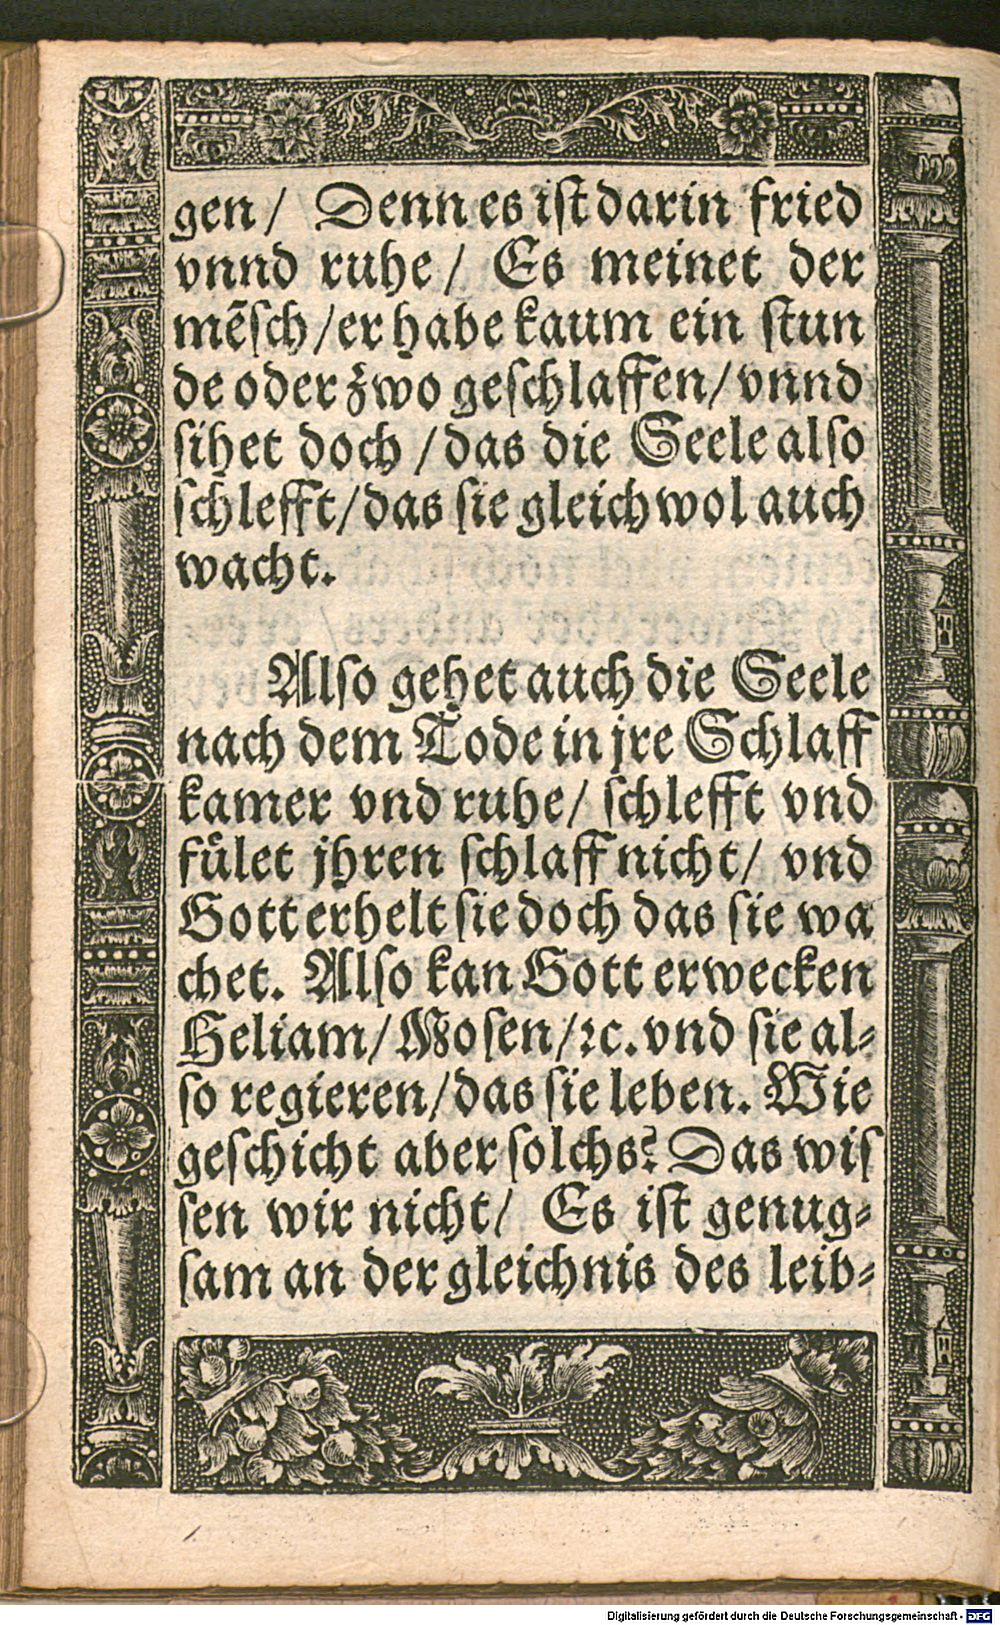 gen/ Denn es ist darin fried
vnnd ruhe/ Es meinet der
mẽsch/er habe kaum ein stun
de oder zwo geschlaffen/vnnd
sihet doch/das die Seele also
schlefft/das sie gleich wol auch
wacht.
Also gehet auch die Seele
nach dem Tode in jre Schlaff
kamer vnd ruhe/ schlefft vnd
fuͤlet jhren schlaff nicht/ vnd
Gott erhelt sie doch das sie wa
chet. Also kan Gott erwecken
Heliam/Mosen/ꝛc. vnd sie al⸗
so regieren/das sie leben. Wie
geschicht aber solchs? Das wis
sen wir nicht/ Es ist genug⸗
sam an der gleichnis des leib⸗
Digitalisierung gefördert durch die Deutsche Forschungsgemeinschaft - DFG